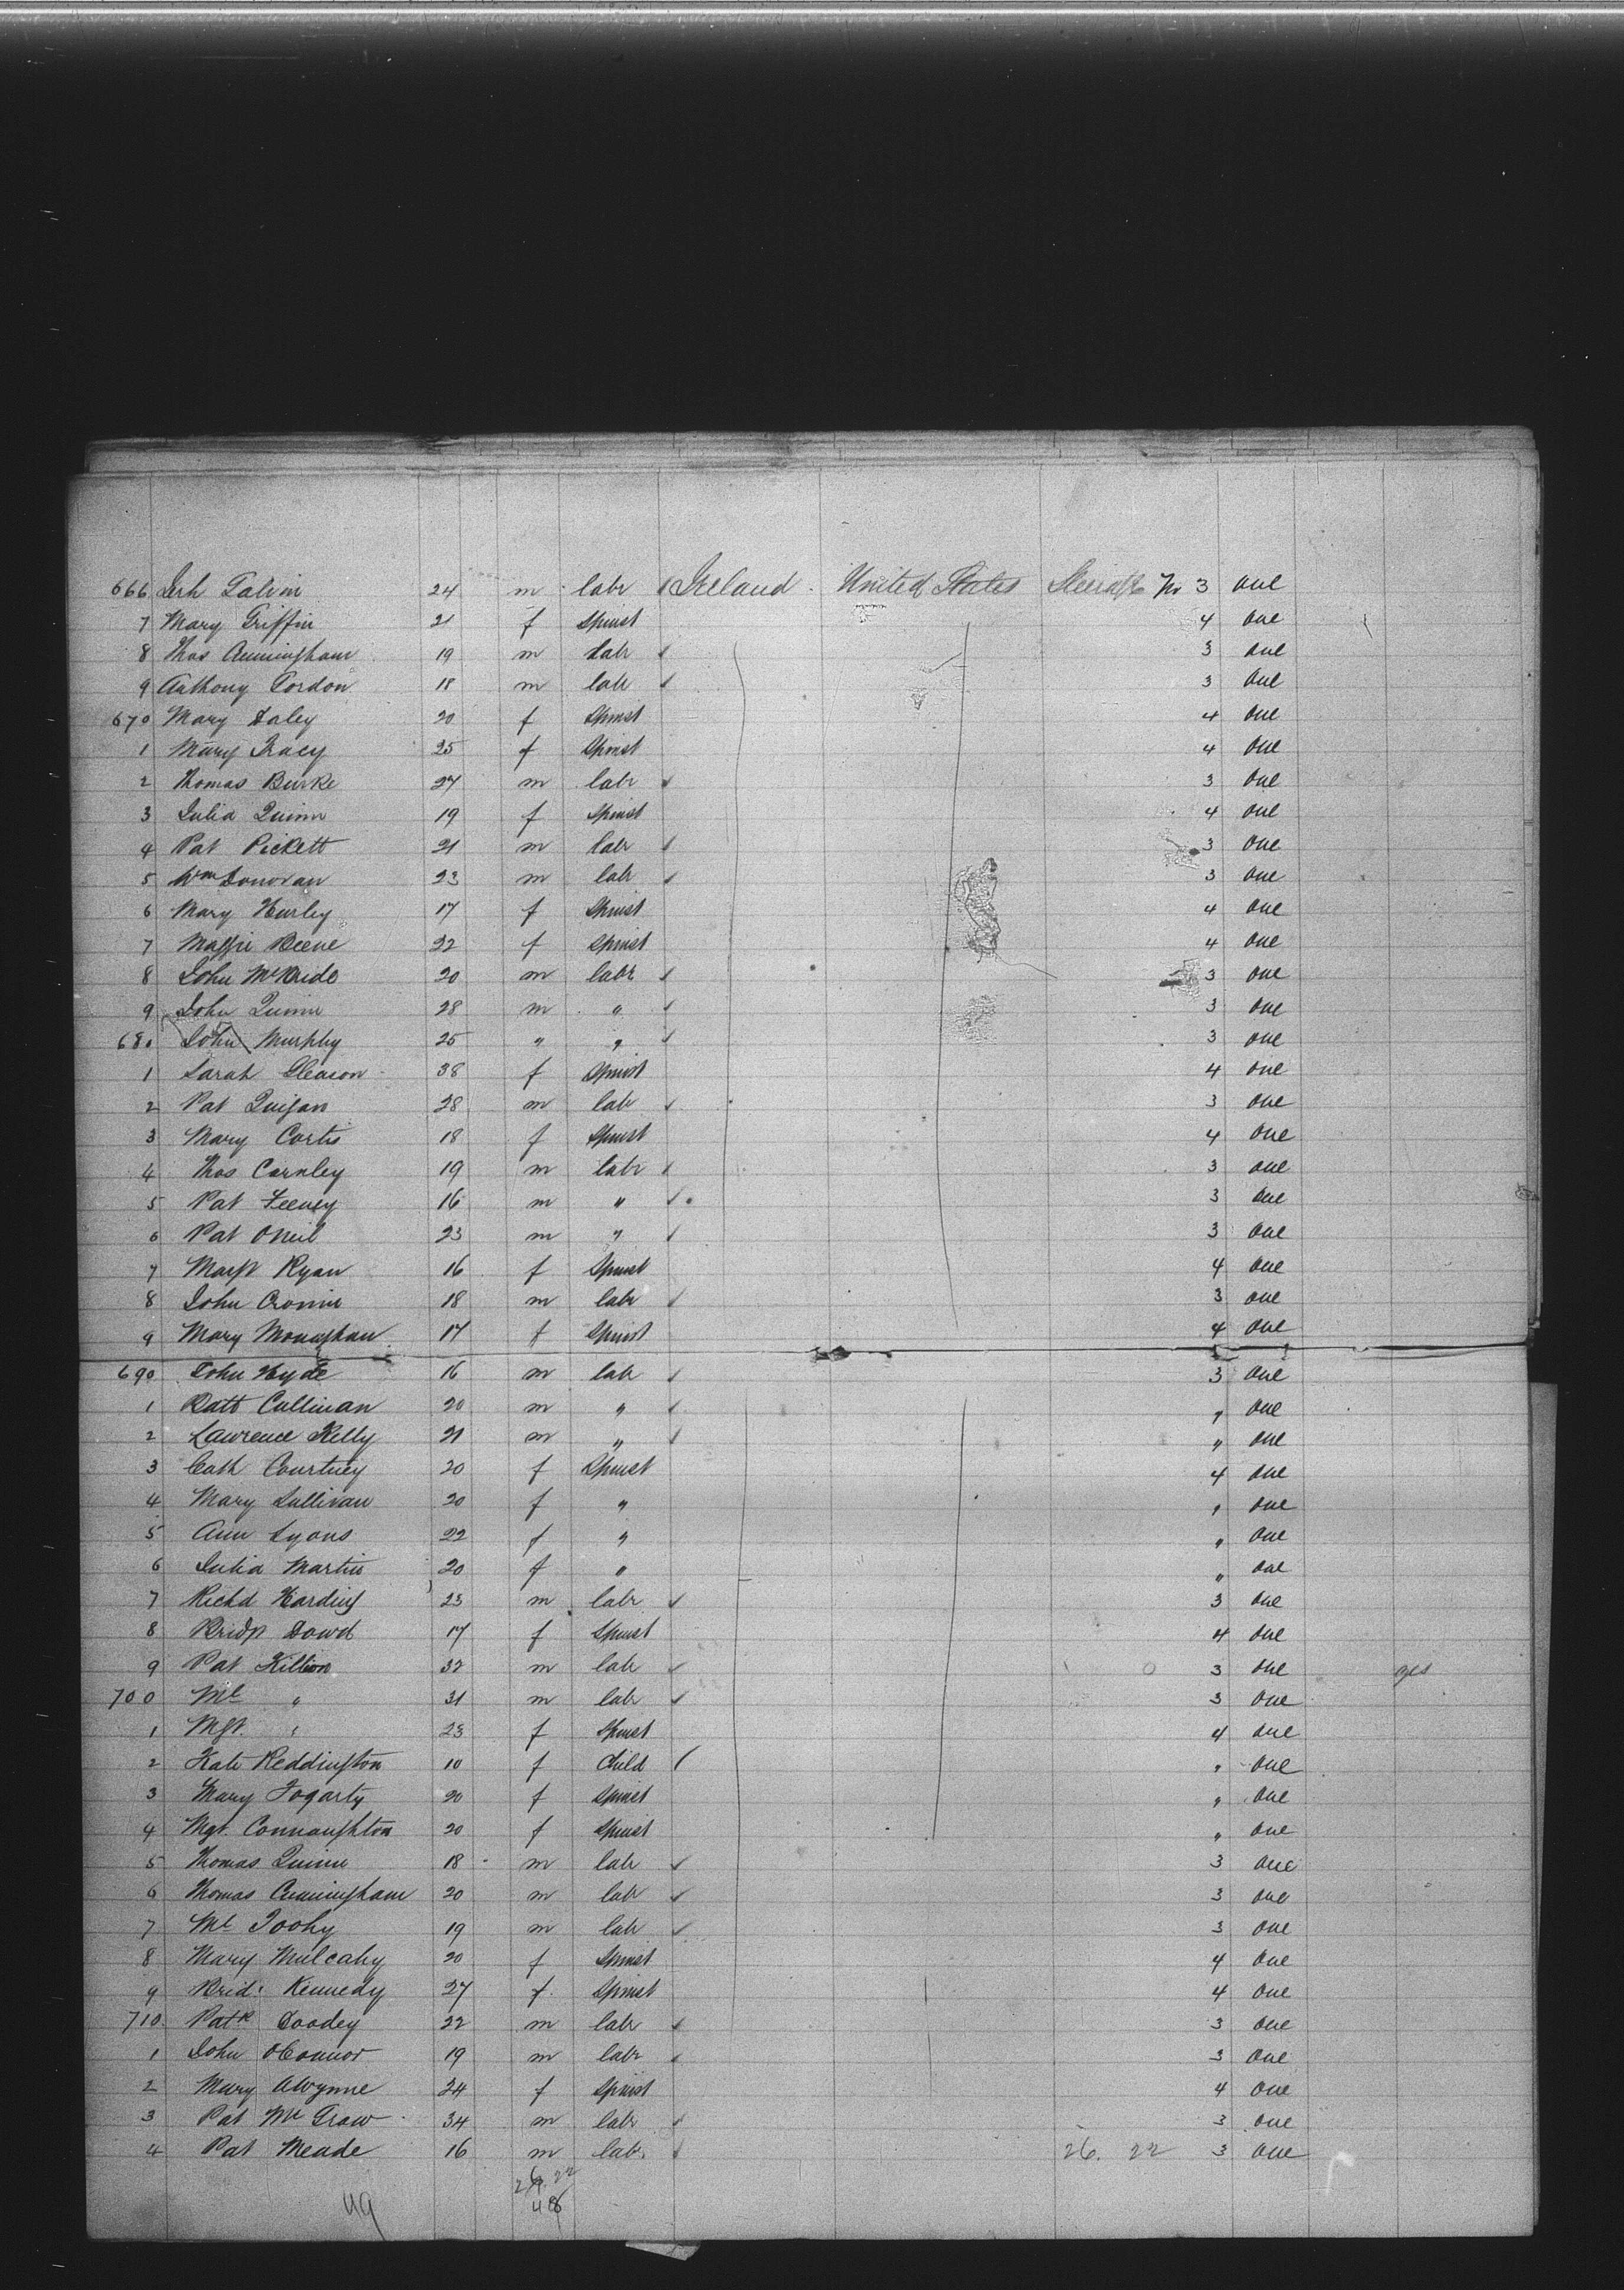 666 Jerh Galvin 24 m labr Ireland United States Steerage No 3 one
7 Mary Griffin 21 f Spinst 4 one
8 Thos Cunningham 19 m labr 3 one
9 Anthony Gordon 18 m labr 3 one
670 Mary Daley 20 f Spinst 4 one
1 Mary Tracy 25 f Spinst 4 one
2 Thomas Burke 27 m labr 3 one
3 Julia Quinn 19 f Spinst 4 one
4 Pat Pickett 21 m labr 3 one
5 Wm Donovan 23 m labr 3 one
6 Mary Hurley 17 f Spinst 4 one
7 Maggie Beene 22 f Spinst 4 one
8 John McBride 20 m labr 3 one
9 John Quinn 28 m " 3 one
680 John Murphy 25 " " 3 one
1 Sarah Gleason 38 f Spinst 4 one
2 Pat Quigan 28 m labr 3 one
3 Mary Cortis 18 f Spinst 4 one
4 Thos Carnley 19 m labr 3 one
5 Pat Feeney 16 m " 3 one
6 Pat ONeil 23 m " 3 one
7 Margt Ryan 16 f Spinst 4 one
8 John Cronin 18 m labr 3 one
9 Mary Monaghan 17 f Spinst 4 one
690 John Hyde 16 m labr 3 one
1 Batt Cullinan 20 m " " one
2 Lawrence Kelly 21 m " " one
3 Cath Courtney 20 f Spinst 4 one
4 Mary Sullivan 20 f " " one
5 Ann Lyons 22 f " " one
6 Julia Martin 20 f " " one
7 Richd Harding 23 m labr 3 one
8 Bridgt Dowd 17 f Spinst 4 one
9 Pat Killion 32 m labr 3 one yes
700 Ml " 31 m labr 3 one
1 Mgt. " 23 f Spinst 4 one
2 Kate Reddington 10 f Child " one
3 Mary Fogarty 20 f Spinst " one
4 Mgt. Connaughton 20 f Spinst " one
5 Thomas Quinn 18 m labr 3 one
6 Thomas Cunningham 20 m labr 3 one
7 Ml Toohy 19 m labr 3 one
8 Mary Mulcahy 20 f Spinst 4 one
9 Brid: Kennedy 27 f. Spinst 4 one
710 Patk Doodey 22 m labr 3 one
1 John OConnor 19 m labr 3 one
2 Mary Alwynne 24 f Spinst 4 one
3 Pat McGraw 34 m labr 3 one
4 Pat Meade 16 m labr. 26. 22 3 one
22
49 48